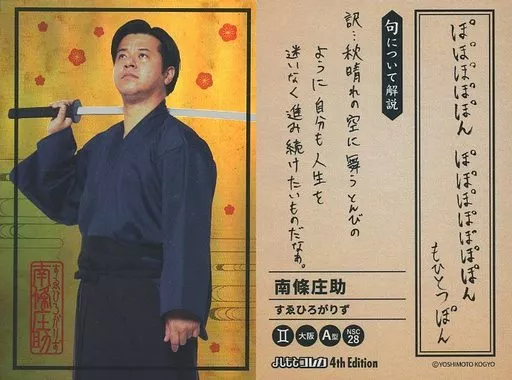 すゑひろがりず
南條庄助
ぽぽぽぽん ぽぽぽぽぽぽん
もひとつ ぽん
句について解説
訳…秋晴れの空に舞うとんびの
ように自分も人生を
迷いなく進み続けたいものだなぁ。
南條庄助
すゑひろがりず
II 大阪 A型 NSC28
ハイモモコレカ 4th Edition
©YOSHIMOTO KOGYO